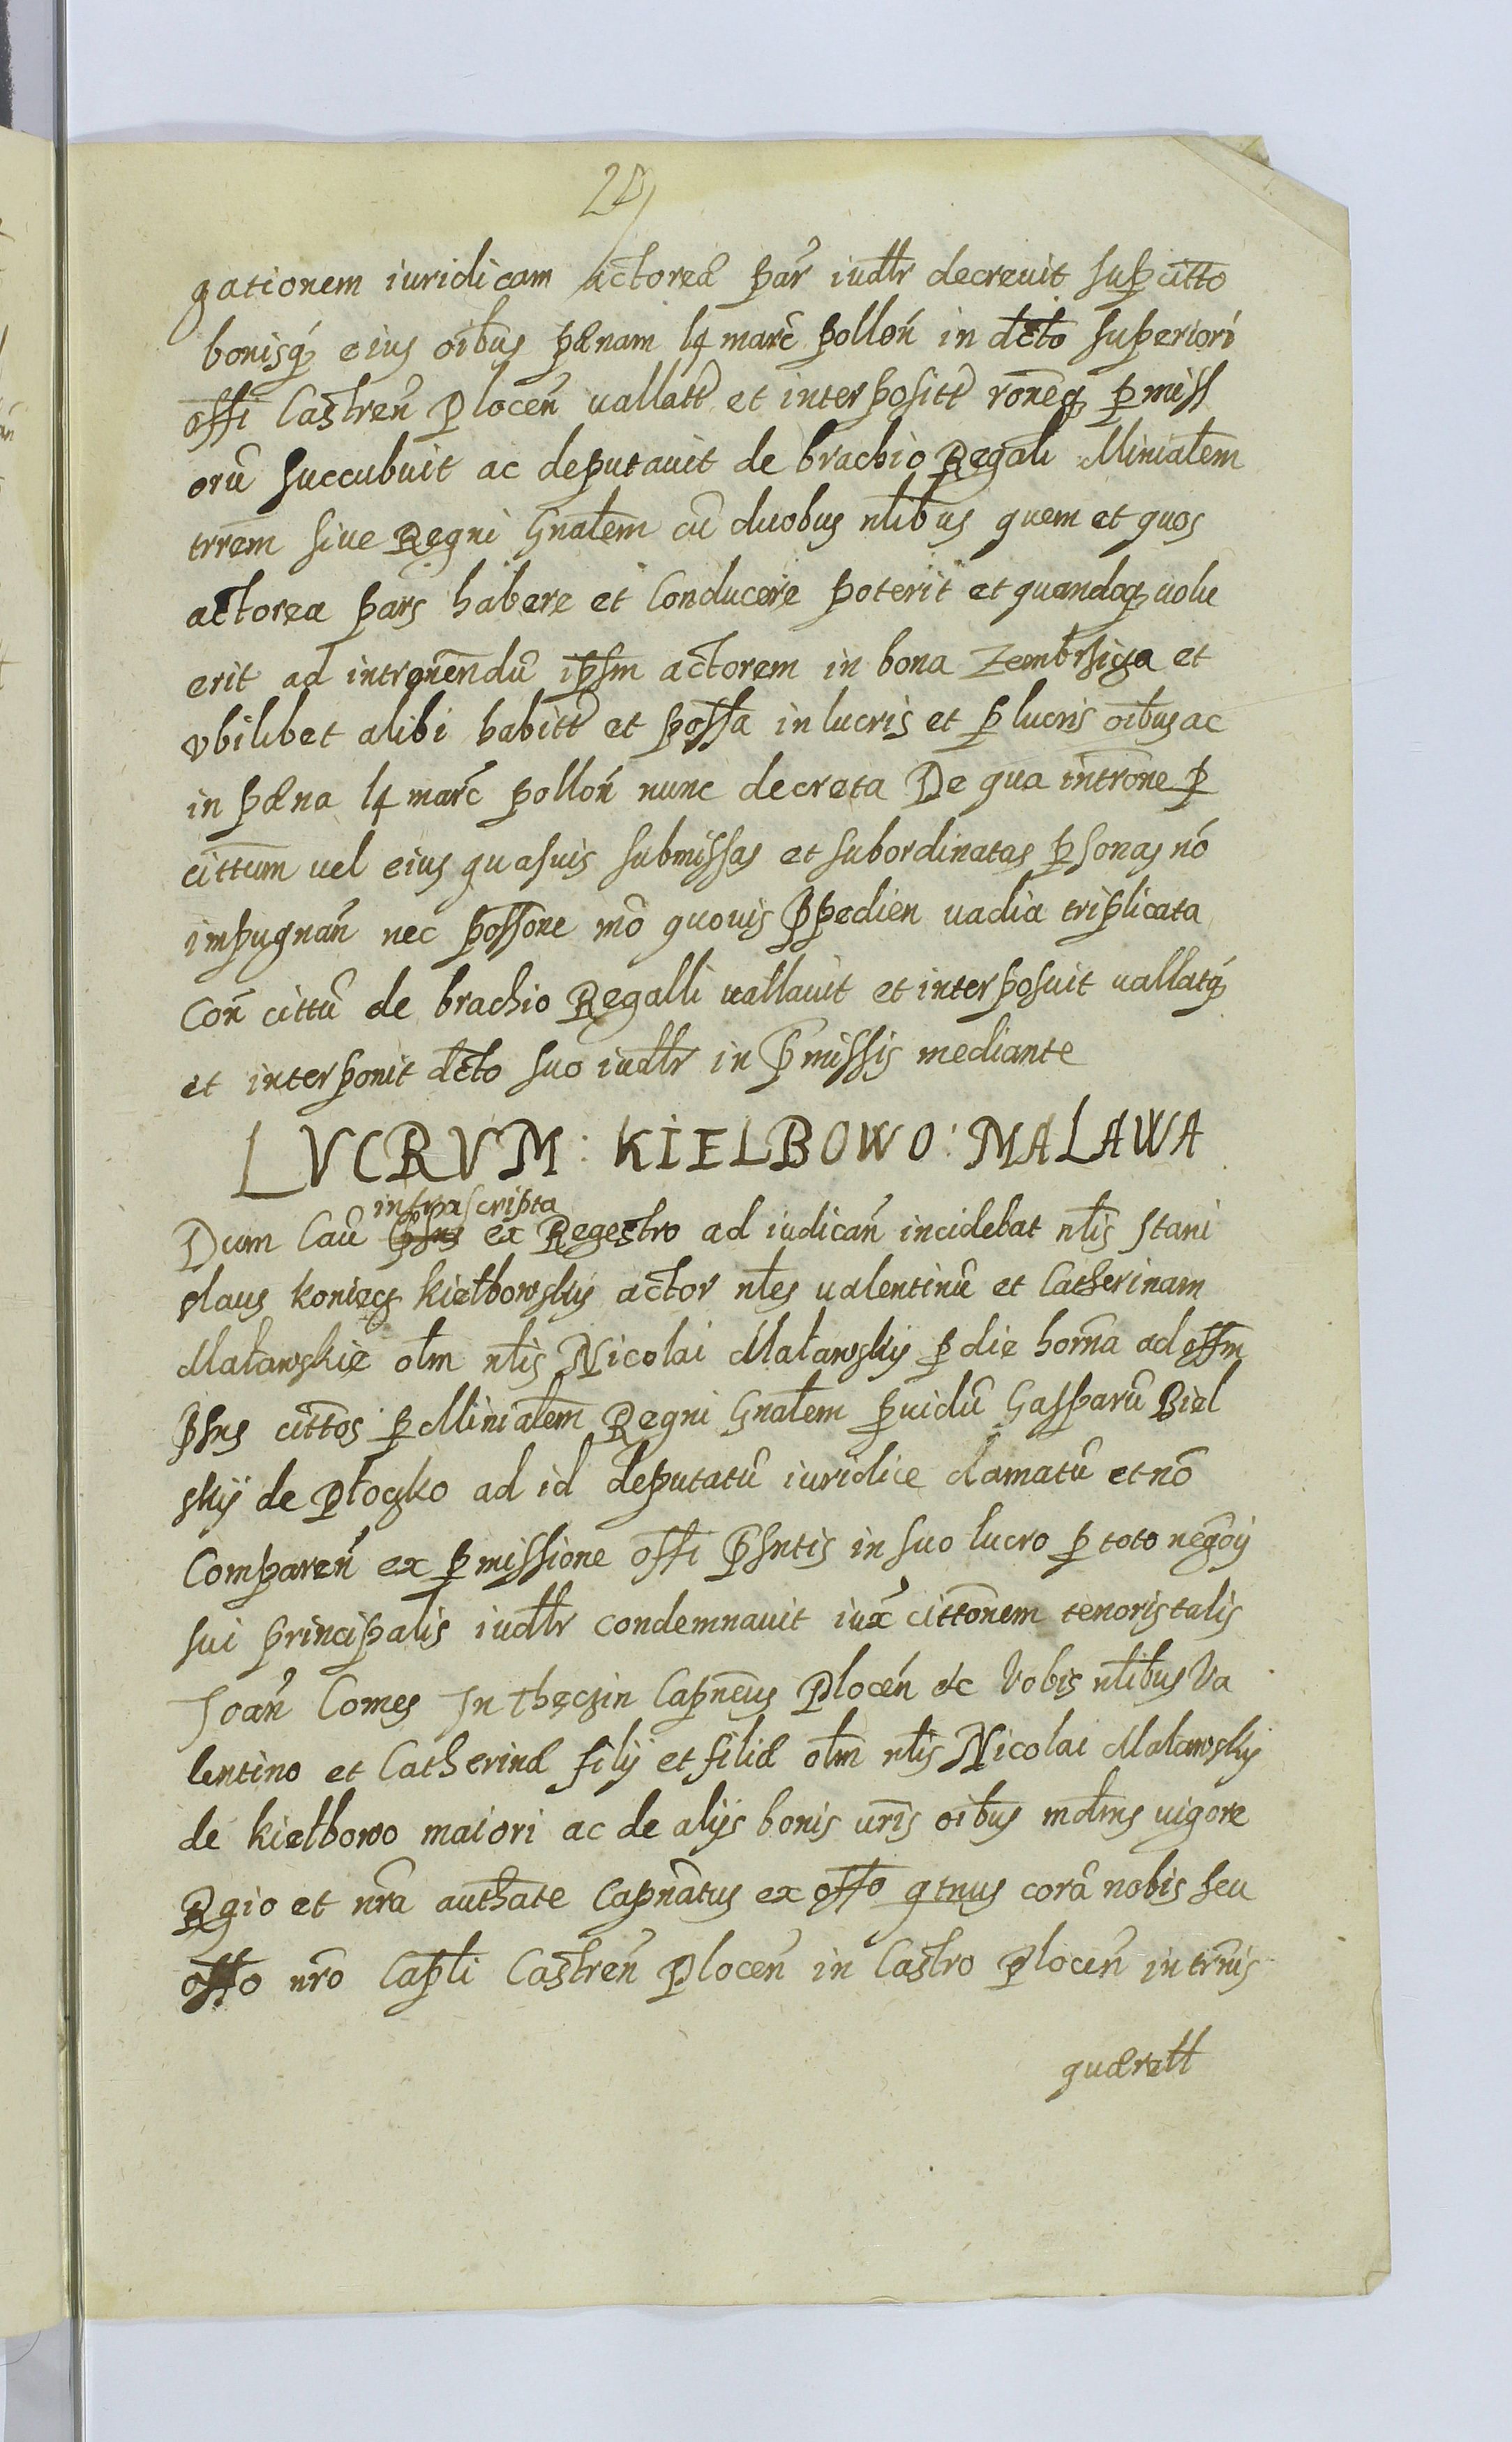 gationem iuridicam actoreæ par̃ iudłr decrevit sup citto
bonisq̨ eius oibus pænam 14 marc̃ pollon̄ in dcto superiori
offi Castren̄ Plocen̄ vallatt et interpositt ronēq̨ p̱miss
orū succubuit ac deputavit de brachio Regali Miniałem
trrem siue Regni Gnałem cū duobus nłibus quem et quos
actorea pars habere et Conducere poterit et quandoq̨ volu
erit ad intronēndū ip̄sm actorem in bona Zembrsiga et
vbilibet alibi habitt et possa in lucris et p̱ lucris oibus ac
in pæna 14 marc̃ pollon̄ nunc decreta De qua introne p̱
cittum vel eius quasuis submissas et subordinatas p̱sonas nō
impugnan̄ nec possone mō quovis p̄pedien vadia triplicata
Con̄ cittū de brachio Regalli vallavit et interposuit vallatq̨
et interponit dcto suo iudłr in p̄missis mediante
LVCRVM : KIELBOWO : MALAWA
infrascripta
Dum Caū ex Regestro ad iudican̄ incidebat nłis Stani
slaus koniecz kiełbowskij actor nłes valentinū et Catherinam
Maławskie ołm nłis Nicolai Maławskij p̱ die horna ad offm
p̄sns cittos p̱ Miniałem Regni Gnałem p̱uidū Gasparū Biel
skij de Płoczko ad id deputatū iuridice clamatū et nō
Comparen̄ ex p̱missione offi p̄sntis in suo lucro p̱ toto negōij
sui principalis iudłr condemnavit iux̄ cittonem tenoris talis
Joan̄ Comes In Thęczin Capneus Plocen̄ etc Vobis nłibus Va
lentino et Catherinæ filij et filiæ ołm nłis Nicolai Maławskij
de kiełbowo maiori ac de alijs bonis vris oibus mdms vigore
Rgio et nra authate Capnatus ex offo qtnus corā nobis seu
offo nro Capli Castren̄ Plocen̄ in Castro Plocen̄ in trmis
quærell